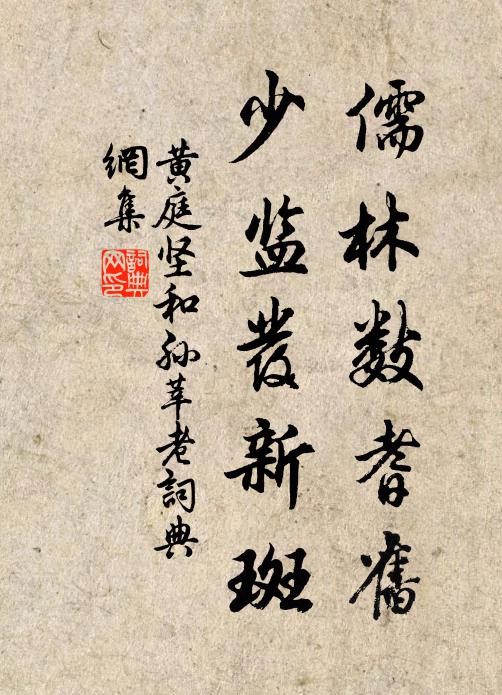 儒林数耆舊
少监发新斑
黄庭坚和孙莘老詞典
網集
詞典
网印